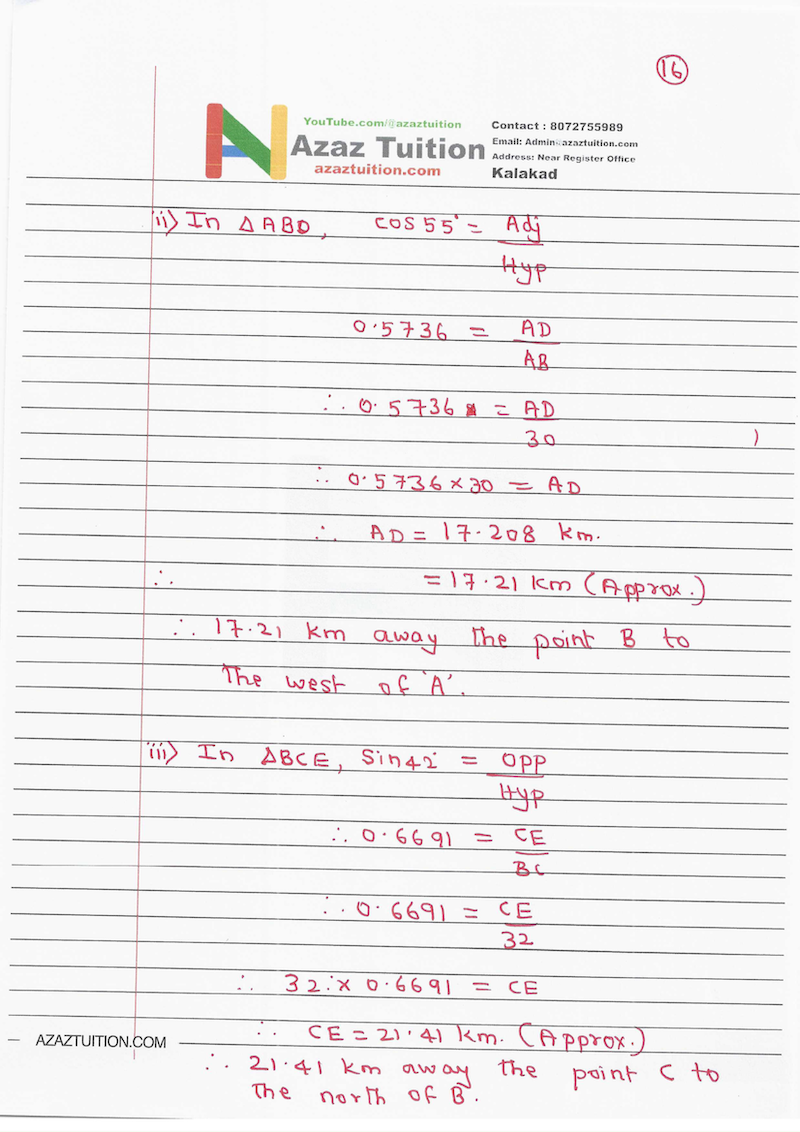 16
YouTube.com/@azaztuition
Azaz Tuition
azaztuition.com
Contact : 8072755989
Email: Admin@azaztuition.com
Address: Near Register Office
Kalakad
ii) In △ABD, cos 55° = Adj
Hyp
0.5736 = AD
AB
∴ 0.5736 = AD
30
∴ 0.5736 × 30 = AD
∴ AD = 17.208 km.
∴ = 17.21 km (Approx.)
∴ 17.21 km away the point B to
the west of 'A'.
iii) In △BCE, Sin 42° = Opp
Hyp
∴ 0.6691 = CE
BC
∴ 0.6691 = CE
32
∴ 32 × 0.6691 = CE
∴ CE = 21.41 km. (Approx.)
AZAZTUITION.COM
∴ 21.41 km away the point C to
the north of B.